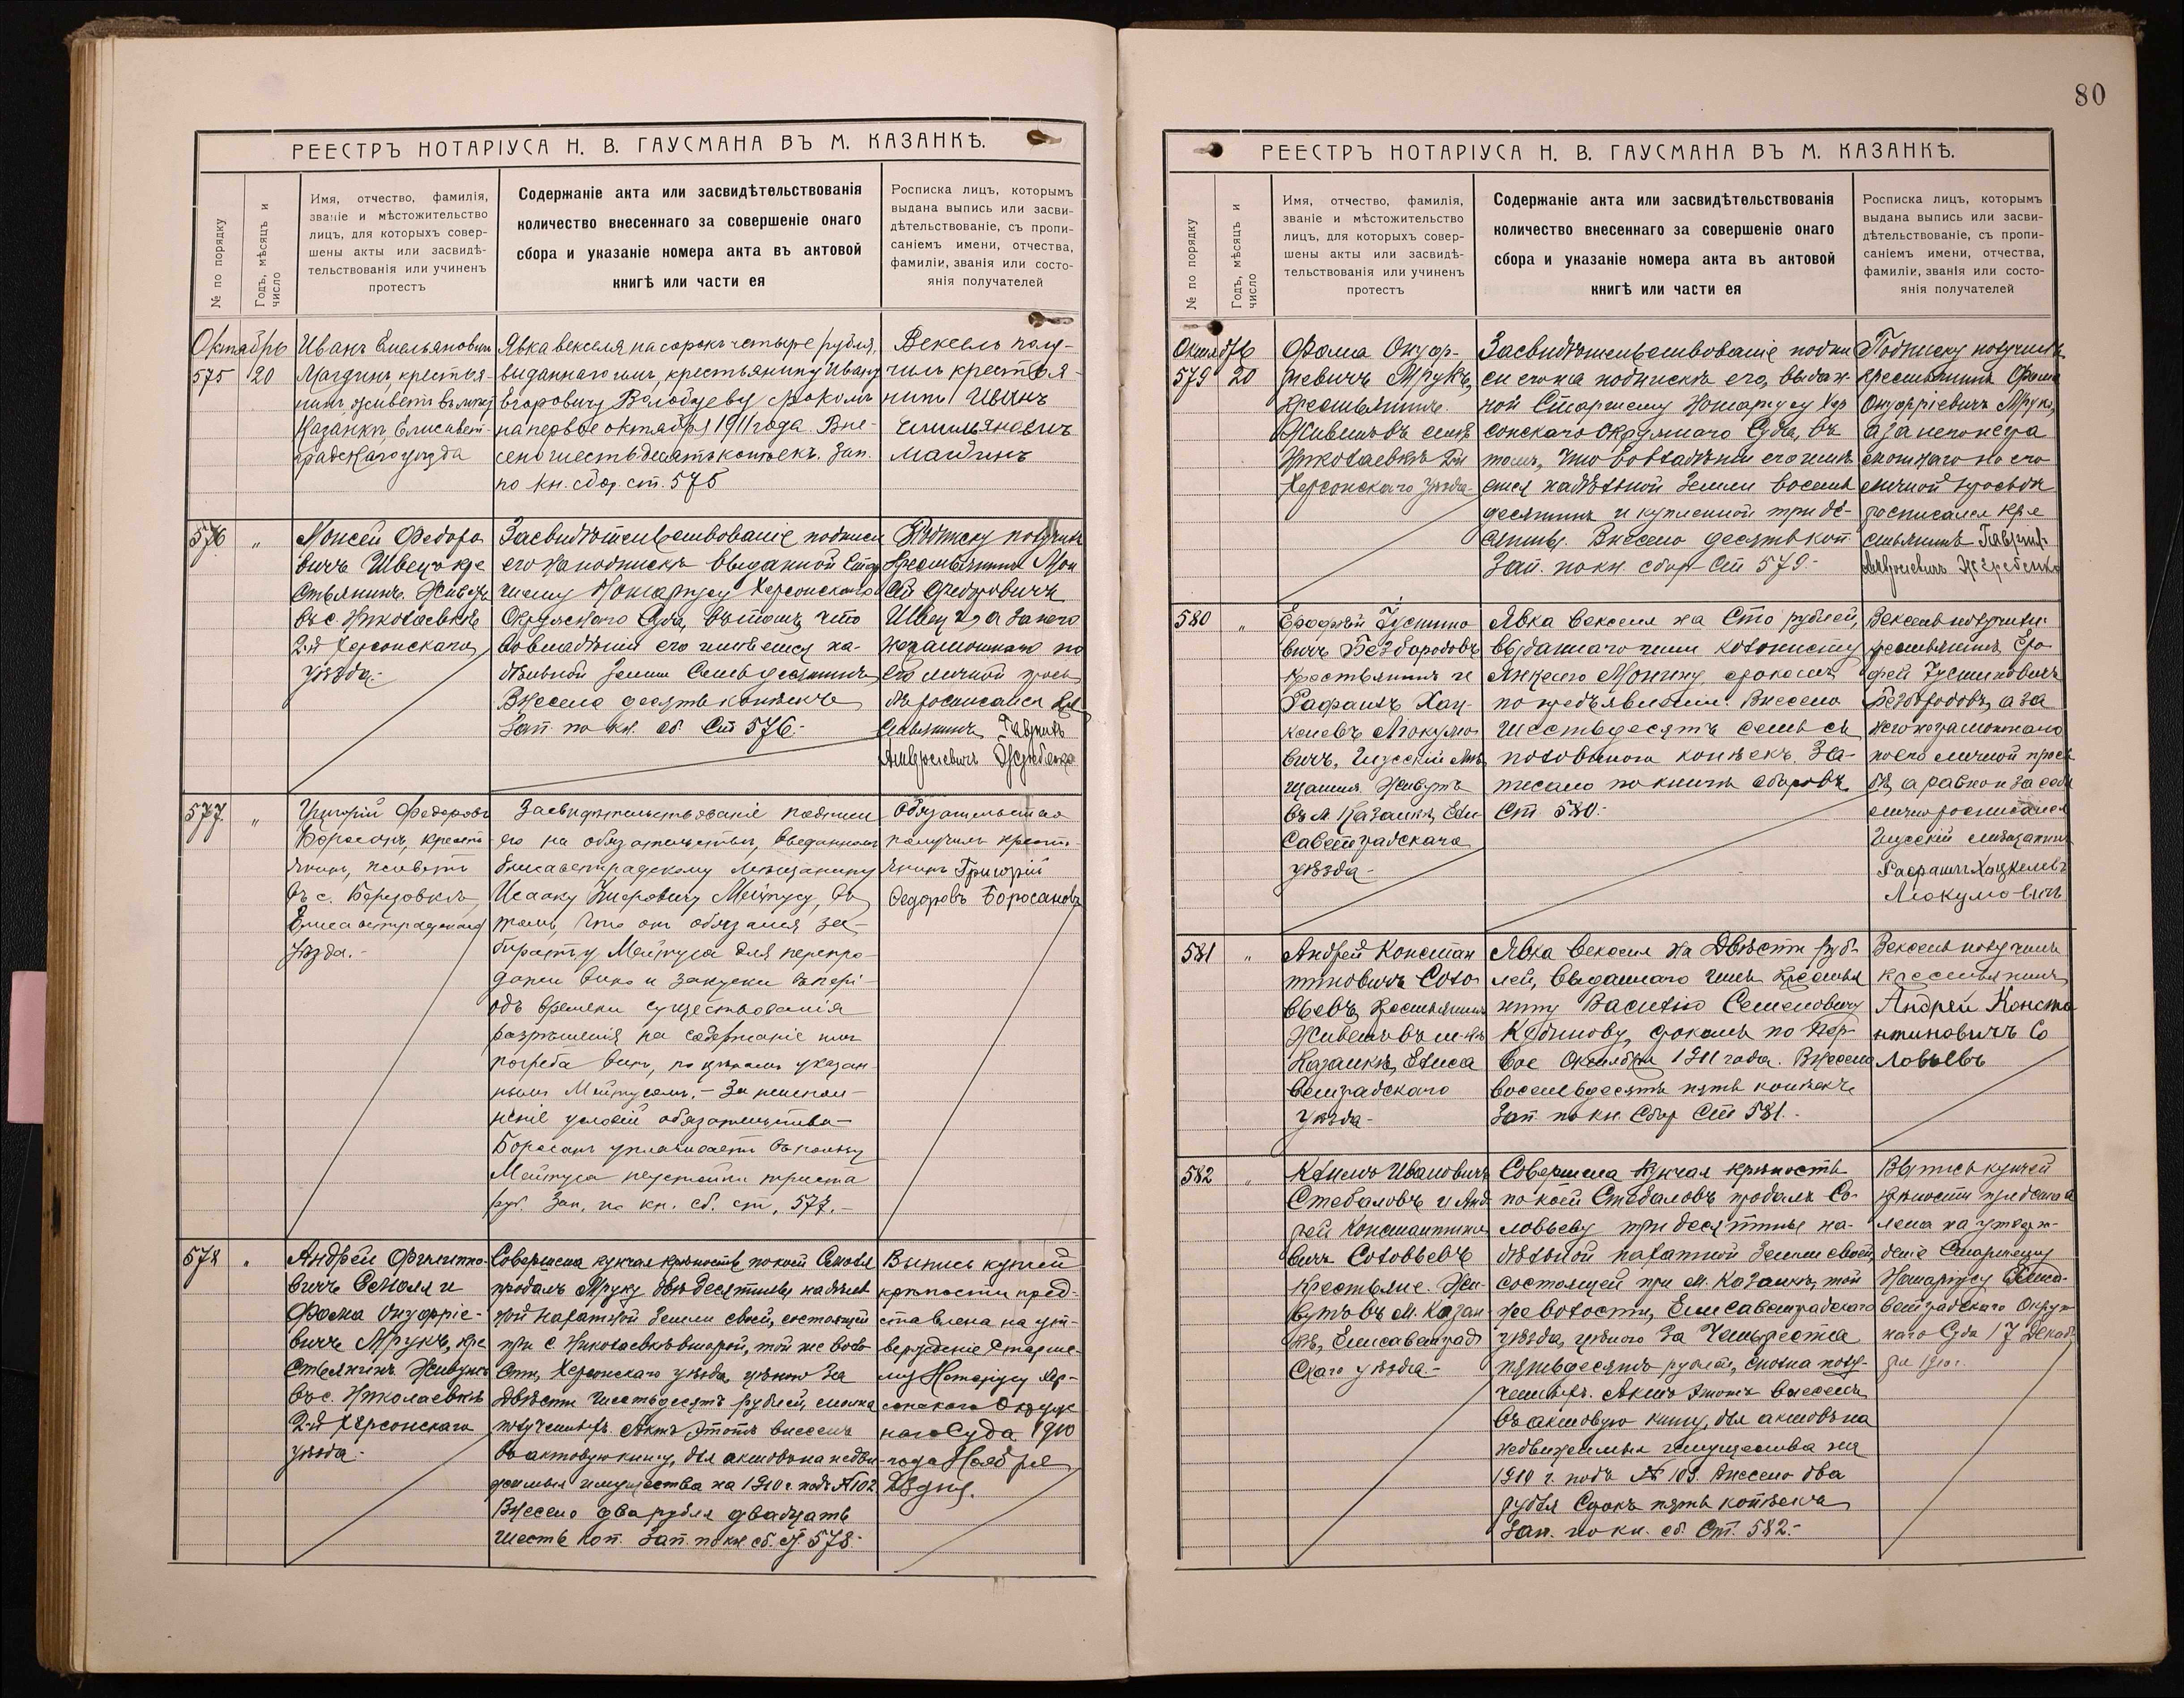 РЕЕСТРЪ НОТАРІУСА Н. В. ГАУСМАНА ВЪ М. КАЗАНКѢ.
№ по порядку
Годъ, мѣсяцъ и
число
Имя, отчество, фамилія,
званіе и мѣстожительство
лицъ, для которыхъ совер-
шены акты или засвидѣ-
тельствованія или учиненъ
протестъ
Содержаніе акта или засвидѣтельствованія
количество внесеннаго за совершеніе онаго
сбора и указаніе номера акта въ актовой
книгѣ или части ея
Росписка лицъ, которымъ
выдана выпись или засви-
дѣтельствованіе, съ пропи-
саніемъ имени, отчества,
фамиліи, званія или состо-
янія получателей
Октябрь
575 20
Иванъ Емельяновичъ
крестья-
нинъ, живетъ въ
Казанкѣ, Елисавет-
градскаго уѣзда
Явка векселя на сорокъ четыре рубля,
выданнаго имъ, крестьянину Ивану
Егоровичу срокомъ
на первое октября 1911 года. Вне-
сено шестьдесятъ копѣекъ. Зап.
по кн. сбор. ст. 575
Вексель полу-
чилъ крестья-
нинъ Иванъ
576 „
Моисей Федоро
вичъ Швецъ кре
стьянинъ. Живетъ
въ с. Николаевкѣ
2-й Херсонскаго
уѣзда.-
Засвидѣтельствованіе подписи
его на подпискѣ выданной Стар
шему Нотаріусу Херсонскаго
Окружнаго Суда, въ томъ, что
во владѣніи его имѣется на-
дѣльной земли семь десятинъ
Внесено десять копѣекъ
Зап. по кн. сб. Ст 576.-
Подписку получилъ
крестьянинъ Мои
сей Федоровичъ
Швецъ, а за него
неграмотнаго по
его личной прось
бѣ росписался кре
стьянинъ Гавріилъ
Амвросіевичъ
577. „
Григорій Федоровъ
Боросанъ, кресть
янинъ, живетъ
въ с. Березовкѣ,
Елисаветградскаго
уѣзда.-
Засвидѣтельствованіе подписи
его на обязательствѣ, выданномъ
Елисаветградскому мѣщанину
Исааку Мейтусу, въ
томъ, что онъ обязался за-
бирать у Мейтуса для перепро-
дажи вино и закуски въ пері-
одъ времени существованія
разрѣшенія на содержаніе имъ
погреба винъ, по цѣнамъ указан-
нымъ Мейтусомъ.- За неиспол-
неніе условій обязательства-
Боросанъ уплачиваетъ въ пользу
Мейтуса неустойки триста
руб. Зап. по кн. сб. ст. 577.-
Обязательство
получилъ кресть-
янинъ Григорій
Федоровъ Боросановъ
578 „
Андрей Филиппо-
вичъ и
Фома Онуфріе-
вичъ Мрукъ, кре
стьянинъ. Живутъ
въ с. Николаевкѣ
2-й Херсонскаго
уѣзда.-
Совершена купчая крѣпость по коей
продалъ Мруку двѣ десятины надѣль
ной пахатной земли своей, состоящей
при с. Николаевкѣ второй, той же воло
сти, Херсонскаго уѣзда, цѣною за
Двѣсти шестьдесятъ рублей, сполна
полученныхъ. Актъ этотъ внесенъ
въ актовую книгу, для актовъ на недви
жимыя имущества на 1910 г. подъ №102
Внесено два рубля двадцать
шесть коп. Зап. по кн. сб. ст 578.-
Выпись купчей
крѣпости пред-
ставлена на ут-
вержденіе Старше-
му Нотаріусу Хер-
сонскаго Окруж
наго Суда 1910
года Ноября
дня.
80
РЕЕСТРЪ НОТАРІУСА Н. В. ГАУСМАНА ВЪ М. КАЗАНКѢ.
№ по порядку
Годъ, мѣсяцъ и
число
Имя, отчество, фамилія,
званіе и мѣстожительство
лицъ, для которыхъ совер-
шены акты или засвидѣ-
тельствованія или учиненъ
протестъ
Содержаніе акта или засвидѣтельствованія
количество внесеннаго за совершеніе онаго
сбора и указаніе номера акта въ актовой
книгѣ или части ея
Росписка лицъ, которымъ
выдана выпись или засви-
дѣтельствованіе, съ пропи-
саніемъ имени, отчества,
фамиліи, званія или состо-
янія получателей
Октябрь
579 20
Фома Онуф-
ріевичъ Мрукъ,
крестьянинъ.
Живетъ въ селѣ
Николаевкѣ 2-й
Херсонскаго уѣзда
Засвидѣтельствованіе подпи
си его на подпискѣ его, выдан
ной Старшему Нотаріусу Хер
сонскаго Окружнаго Суда, въ
томъ, что во владѣніи его имѣ
ется надѣльной земли восемь
десятинъ и купленной три де-
сятины. Внесено десять коп.
Зап. по кн. сбор Ст 579.-
Подписку получилъ
крестьянинъ Фома
Онуфріевичъ Мрукъ,
а за него негра
мотнаго по его
личной просьбѣ
росписался кре
стьянинъ Гавріилъ
Амвросіевичъ
580 „
Ерофей Густино
вичъ Безбородовъ
крестьянинъ и
Рафаилъ Хац-
келевъ Мокумо
вичъ, мѣ
щанинъ. Живутъ
въ м. Казанкѣ, Ели
саветградскаго
уѣзда-
Явка векселя на Сто рублей,
выданнаго ими колонисту
срокомъ
по предъявленіи. Внесено
шестьдесятъ семь съ
половиною копѣекъ. За-
писано по книгѣ сборовъ
Ст. 580.-
Вексель получили:
крестьянинъ Еро
фей Густиновичъ
Безбородовъ, а за
него неграмотнаго
по его личной прось
бѣ, а равно и за себя
лично росписался
Рафаилъ Хацкелевъ
Мокумовичъ
581 „
Андрей Констан
тиновичъ Соло
вьевъ, крестьянинъ
Живетъ въ м-кѣ
Казанкѣ, Елиса
ветградскаго
уѣзда-
Явка векселя на Двѣсти руб-
лей, выданнаго имъ крестья
нину Василію Семеновичу
срокомъ по пер-
вое Октября 1911 года. Внесено
восемьдесятъ пять копѣекъ
Зап. по кн. Сбор Ст 581.-
Вексель получилъ
крестьянинъ
Андрей Конста
нтиновичъ Со
ловьевъ
582 „
Ивановичъ
Стебаловъ и Анд
рей Константино
вичъ Соловьевъ
крестьяне. Жи-
вутъ въ м. Казан
кѣ, Елисаветград
скаго уѣзда-
Совершена купчая крѣпость
по коей Стебаловъ продалъ Со-
ловьеву три десятины на-
дѣльной пахатной земли своей,
состоящей при м. Казанкѣ, той
же волости, Елисаветградскаго
уѣзда, цѣною за Четыреста
пятьдесятъ рублей, сполна полу-
ченныхъ. Актъ этотъ внесенъ
въ актовую книгу, для актовъ на
недвижимыя имущества на
1910 г. подъ № 103. Внесено два
рубля Сорокъ пять копѣекъ
Зап. по кн. сб. Ст. 582.-
Выпись купчей
крѣпости предстаа
лена на утверж-
деніе Старшему
Нотаріусу Елиса-
ветградскаго Окруж
наго Суда 17 Декаб
ря 1910 г.